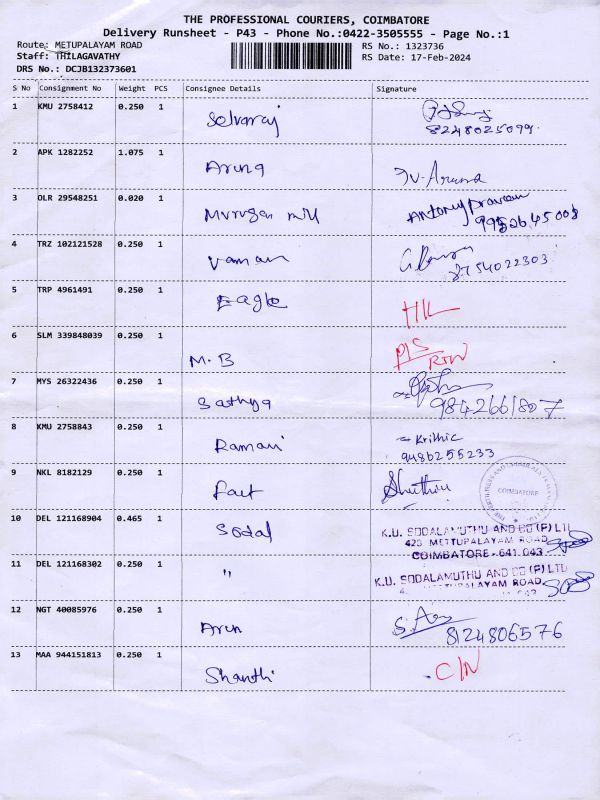 THE PROFESSIONAL COURIERS, COIMBATORE
Delivery Runsheet - P43 - Phone No.:0422-3505555 - Page No.:1
Route: METUPALAYAM ROAD
RS No.: 1323736
Staff: THILAGAVATHY
RS Date: 17-Feb-2024
DRS No.: DCJB132373601
S No Consignment No Weight PCS Consignee Details Signature
1 KMU 2758412 0.250 1 Selvaraj
8248025099
2 APK 1282252 1.075 1 Aruna
3 OLR 29548251 0.020 1 Murugan mill Antony praveen
9952645008
4 TRZ 102121528 0.250 1 Vaman
8754022303
5 TRP 4961491 0.250 1 Eagle
6 SLM 339848039 0.250 1 M.B P/S
RTW
7 MYS 26322436 0.250 1 Sathya
9842661807
8 KMU 2758843 0.250 1 Ramani Krithic
9486255233
9 NKL 8182129 0.250 1
COIMBATORE
10 DEL 121168904 0.465 1 Sodal K.U. SODALAMUTHU AND CO (P) LTD
423 METTUPALAYAM ROAD
COIMBATORE - 641 043
11 DEL 121168302 0.250 1 " K.U. SODALAMUTHU AND CO (P) LTD
METTUPALAYAM ROAD
12 NGT 40085976 0.250 1 Arun
8124806576
13 MAA 944151813 0.250 1 Shanthi C/N